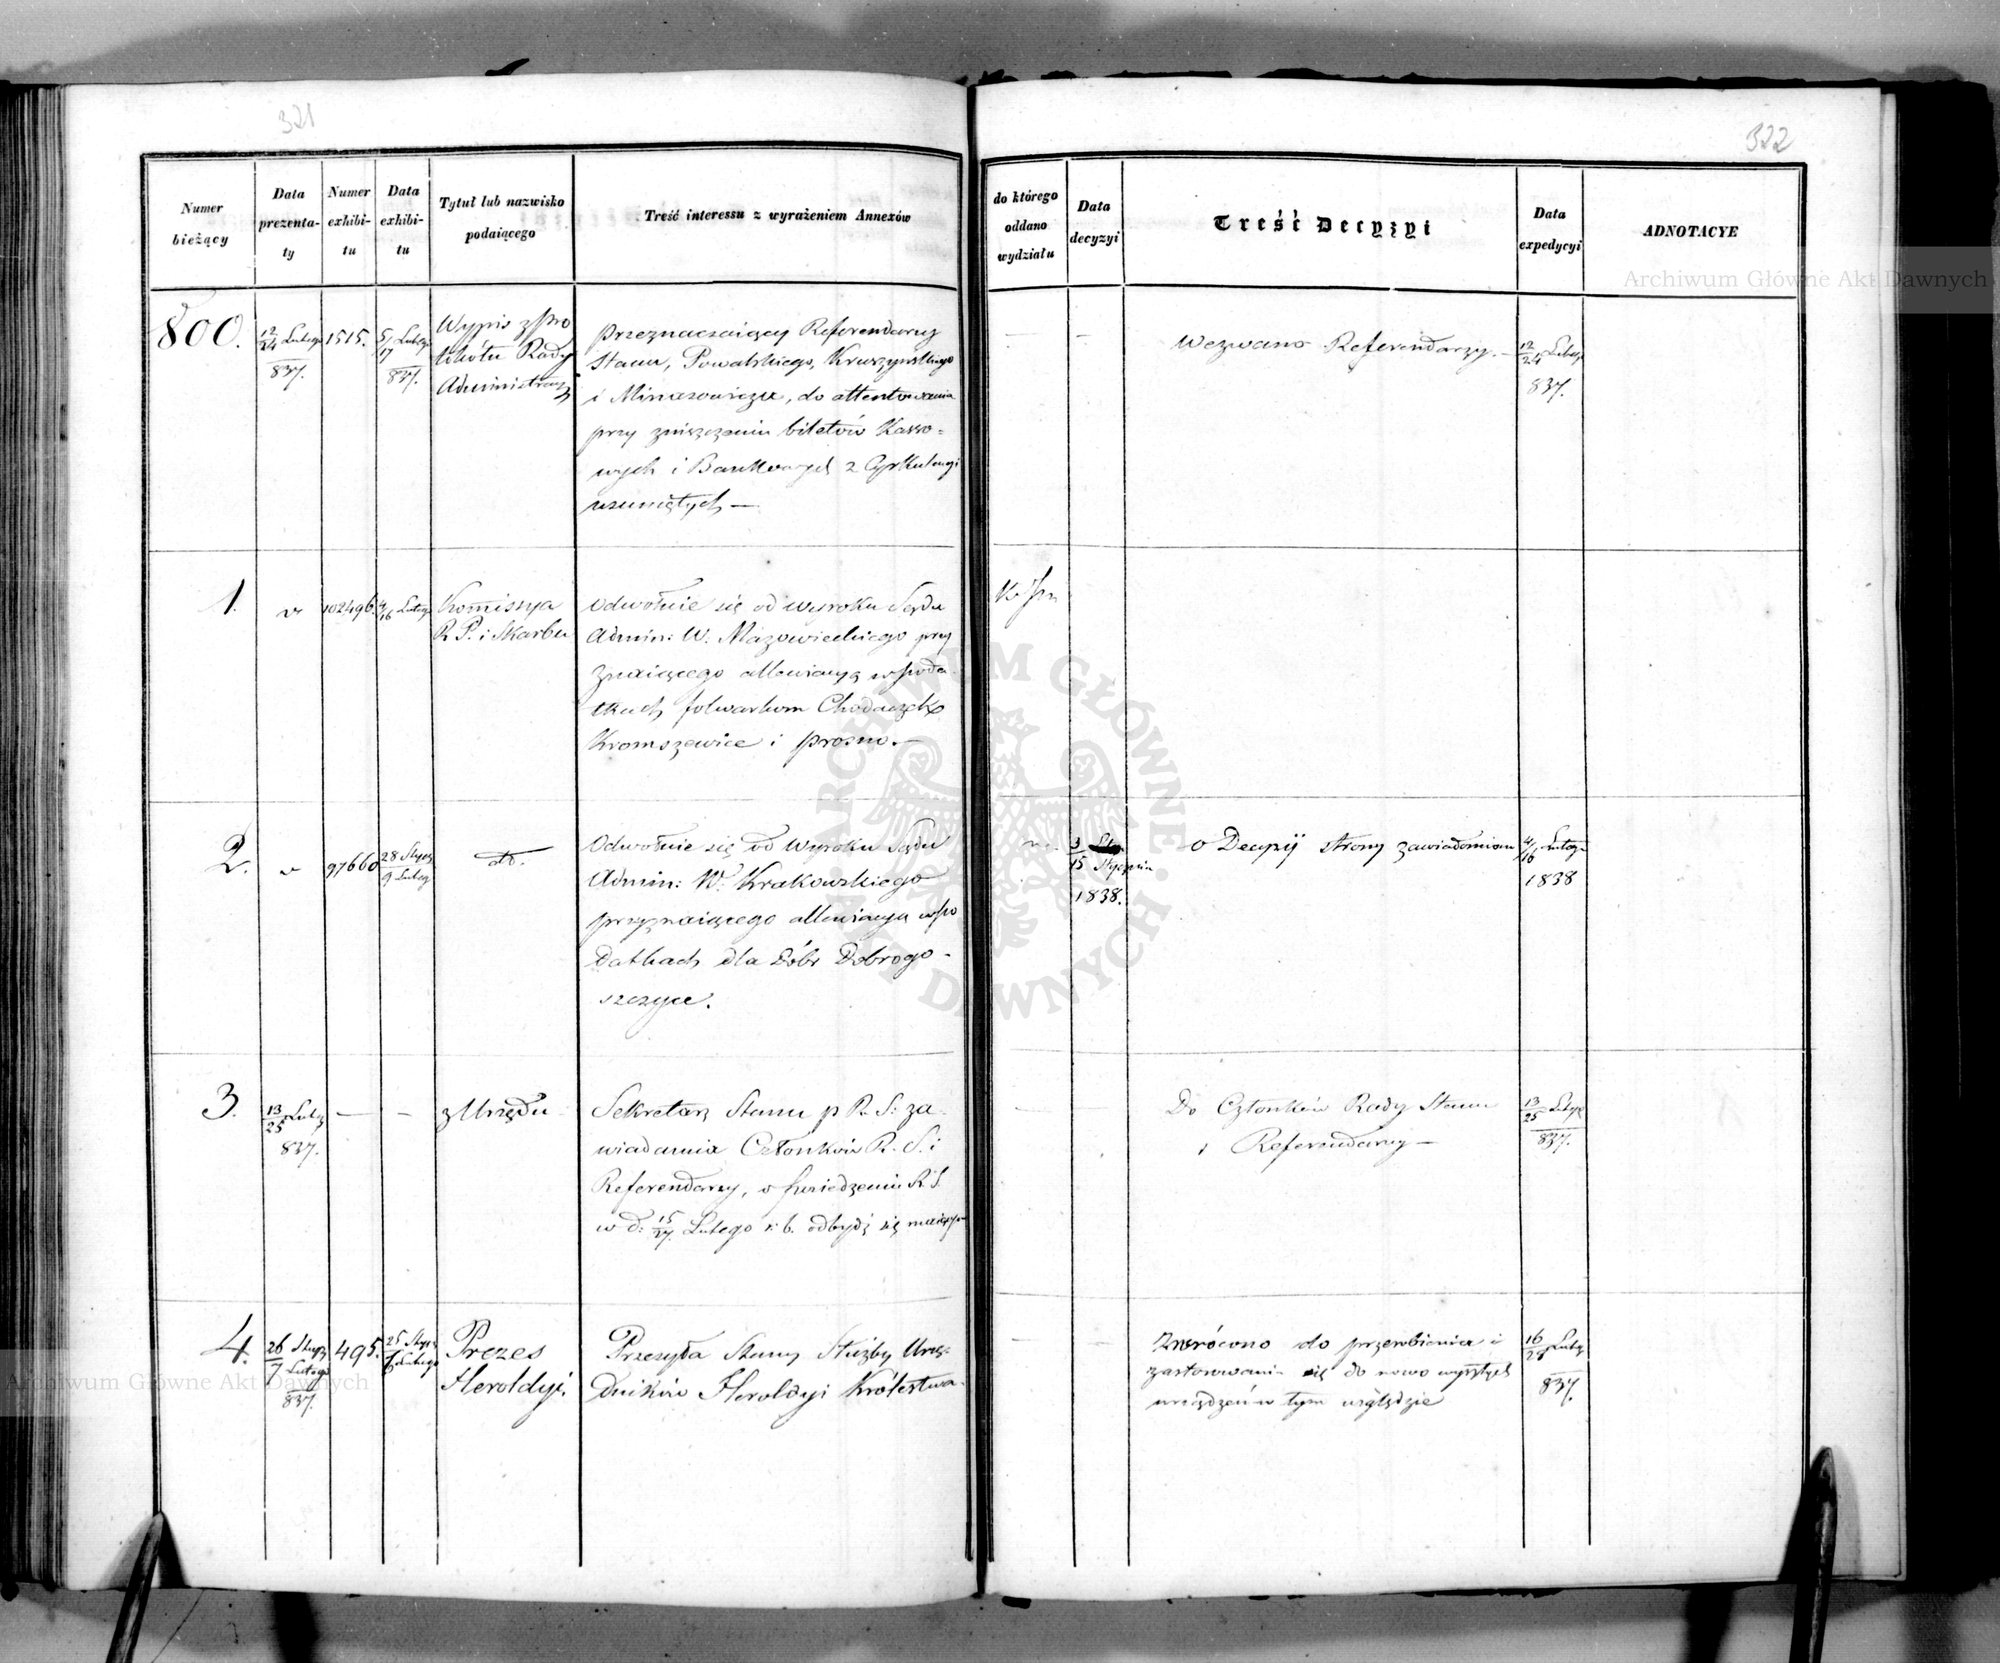 321
322
Numer bieżący
Data prezenta-ty
Numer exhibi-tu
Data exhibi-tu
Tytuł lub nazwisko podaiącego
Treść interessu z wyrażeniem Annexów
do którego oddano wydziału
Data decyzyi
Treść Decyzyi
Data expedycyi
ADNOTACYE
800.
12/24 Lutego
837.
1515.
5/17 Lutego
837.
Wypis z Pro
tokółu Rady
Administrac
przeznaczaiący Referendarzy
Stanu, Powalskiego, Kruszyńskiego
i Minasowicza, do attentowania
przy zniszczeniu biletów Kasso=
wych i Bankowych z Cyrkulacyi
usuniętych —
Wezwano Referendarzy. —
12/24 Lutego
837.
1.
102496.
4/16 Lutego
Komissya
R. P. i Skarbu
Odwołuie się od wyroku Sądu
Admin: W. Mazowieckiego przy
znaiącego allewiacyą w poda
tkach folwarkom Chodaczek
Kromszewice i Prosno. —
2.
97660
28 Stycz
9 Luteg
dto.
Odwołuie się od Wyroku Sądu
Admin: W. Krakowskiego
przyznaiącego allewiacyą w po
datkach dla Dóbr Dobrogo-
szczyce.
3
15 Stycznia
1838.
o Decyzji strony zawiadomiono
4/16 Lutego
1838
3.
13/25 Luty
837.
—
—
z Urzędu
Sekretarz Stanu p R. S: za-
wiadamia Członków R. S. i
Referendarzy, o posiedzeniu R. S.
w d: 15/27 Lutego r. b. odbydź się maiącym
Do Członków Rady Stanu
i Referendarzy —
13/25 Lutego
837.
4.
26 Stycz
7 Lutego
837.
495.
25 Stycz
6 Lutego
Prezes
Heroldyi.
Przesyła Stany Służby Urzę-
dników Heroldyi Królestwa.
Zwrócono do przerobienia i
zastosowania się do nowo wyszłych
urządzeń w tym względzie
16/28 Luty
837.
Archiwum Główne Akt Dawnych
Archiwum Główne Akt Dawnych
ARCHIWUM GŁÓWNE AKT DAWNYCH